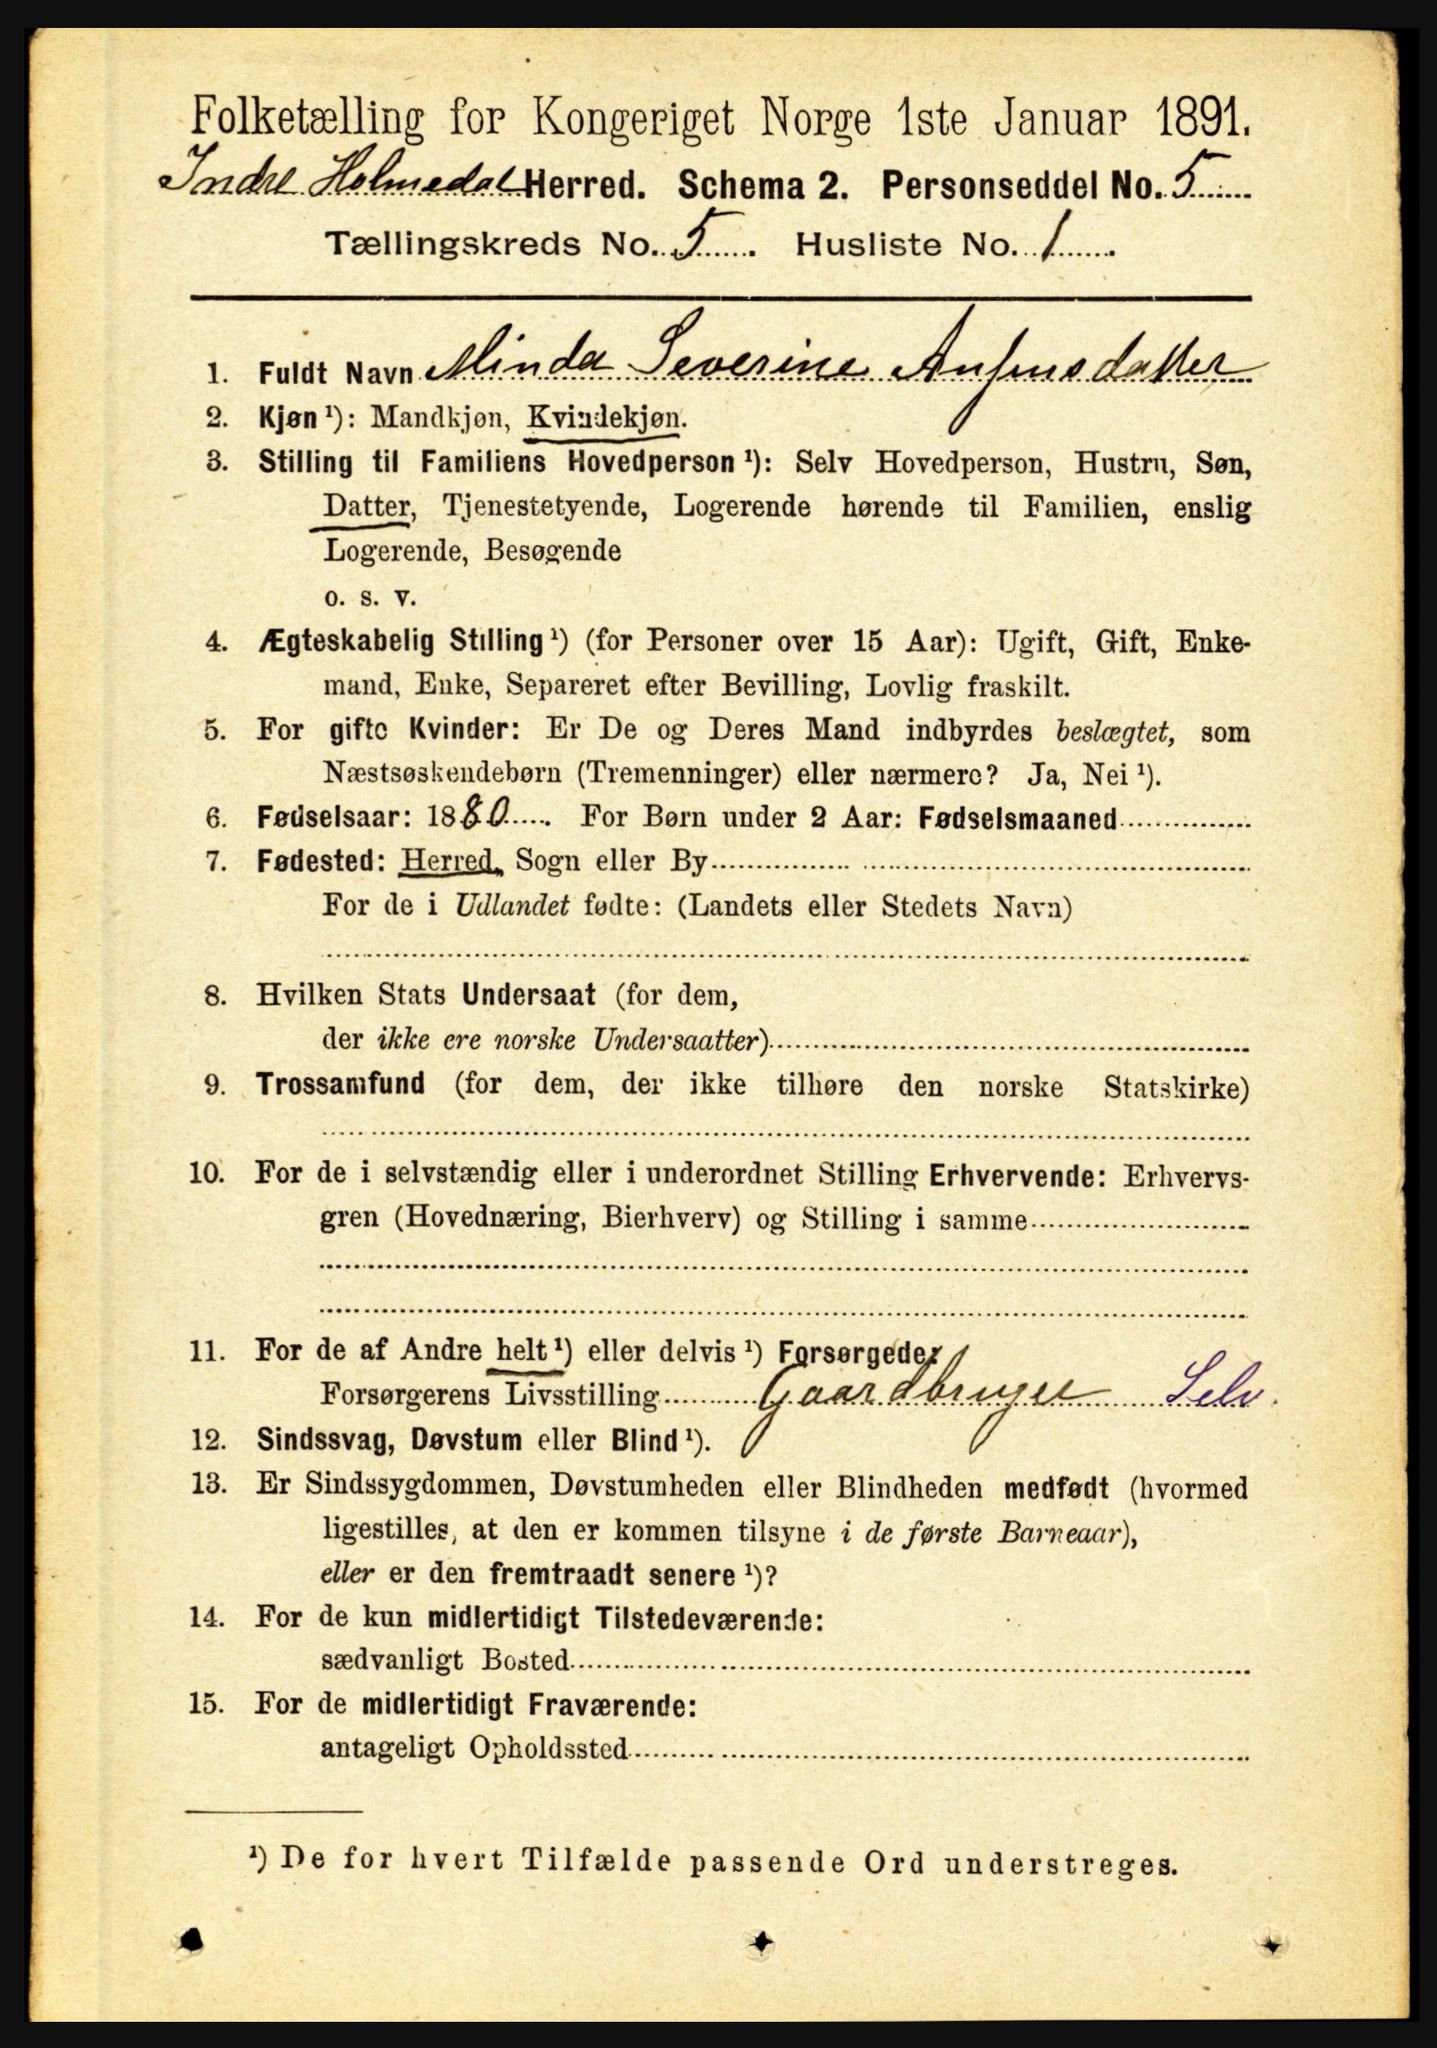 Folketælling for Kongeriget Norge 1ste Januar 1891.
Indre Holmedal Herred. Schema 2. Personseddel No. 5
Tællingskreds No. 5. Husliste No. 1.
1. Fuldt Navn Minda Severine Anfinsdatter
2. Kjøn ¹): Mandkjøn, Kvindekjøn.
3. Stilling til Familiens Hovedperson ¹): Selv Hovedperson, Hustru, Søn,
Datter, Tjenestetyende, Logerende hørende til Familien, enslig
Logerende, Besøgende
o. s. v.
4. Ægteskabelig Stilling ¹) (for Personer over 15 Aar): Ugift, Gift, Enke-
mand, Enke, Separeret efter Bevilling, Lovlig fraskilt.
5. For gifte Kvinder: Er De og Deres Mand indbyrdes beslægtet, som
Næstsøskendebørn (Tremenninger) eller nærmere? Ja, Nei ¹).
6. Fødselsaar: 1880. For Børn under 2 Aar: Fødselsmaaned
7. Fødested: Herred, Sogn eller By
For de i Udlandet fødte: (Landets eller Stedets Navn)
8. Hvilken Stats Undersaat (for dem,
der ikke ere norske Undersaatter)
9. Trossamfund (for dem, der ikke tilhøre den norske Statskirke)
10. For de i selvstændig eller i underordnet Stilling Erhvervende: Erhvervs-
gren (Hovednæring, Bierhverv) og Stilling i samme
11. For de af Andre helt ¹) eller delvis ¹) Forsørgede,
Forsørgerens Livsstilling Gaardbruger Selv.
12. Sindssvag, Døvstum eller Blind ¹).
13. Er Sindssygdommen, Døvstumheden eller Blindheden medfødt (hvormed
ligestilles, at den er kommen tilsyne i de første Barneaar),
eller er den fremtraadt senere ¹)?
14. For de kun midlertidigt Tilstedeværende:
sædvanligt Bosted
15. For de midlertidigt Fraværende:
antageligt Opholdssted
¹) De for hvert Tilfælde passende Ord understreges.